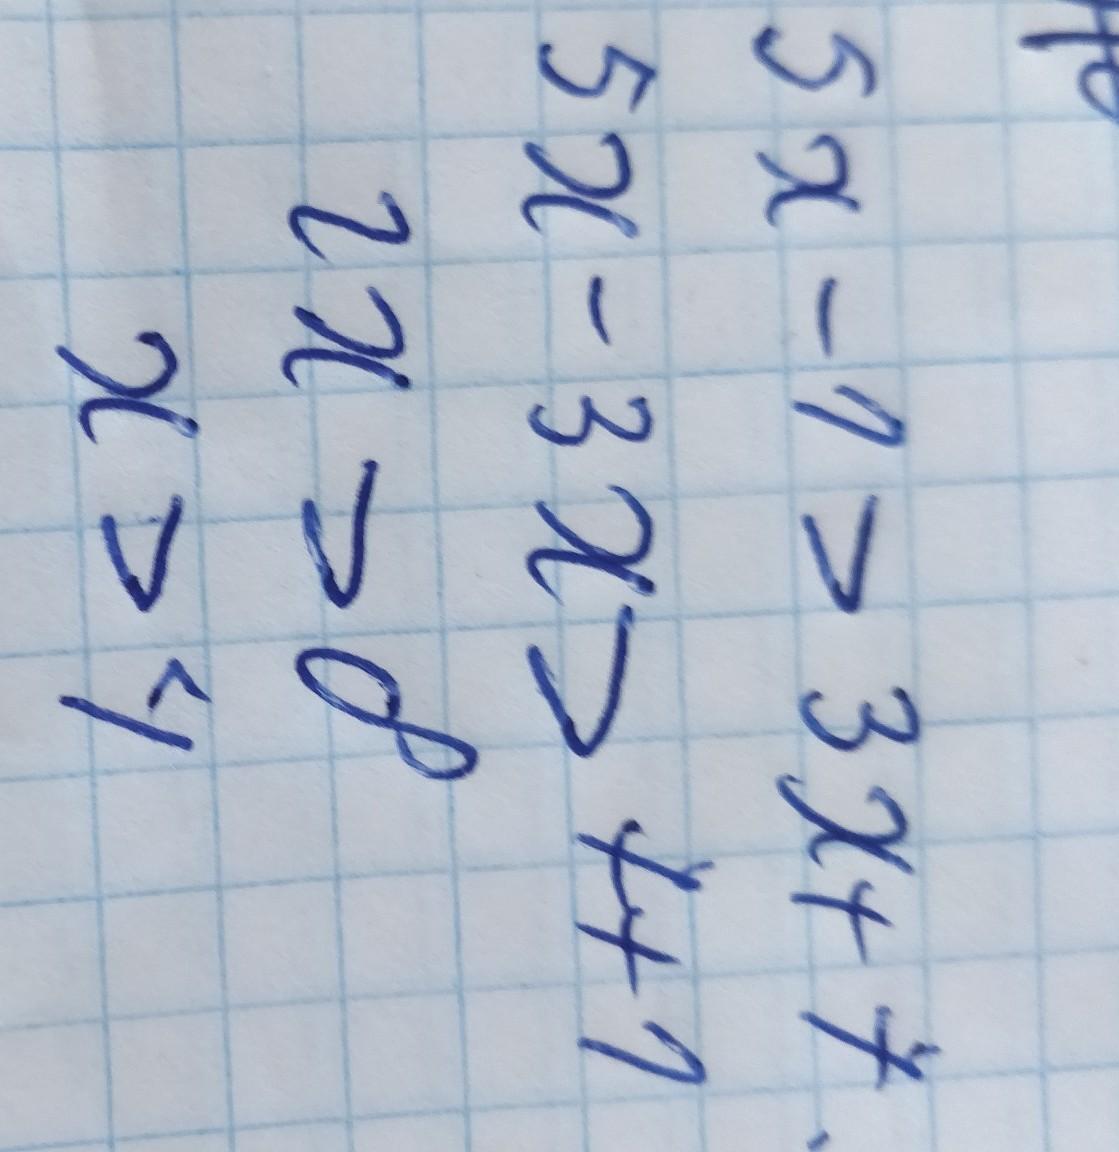 5x - 1 > 3x + 7
5x - 3x > 7 + 1
2x > 8
x > 4